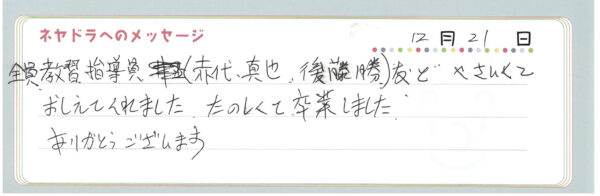 ネヤドラへのメッセージ
12月21日
全員教習指導員(赤代、真也、後藤 勝)など やさしくて
おしえてくれました たのしくて卒業しました
ありがとうございます